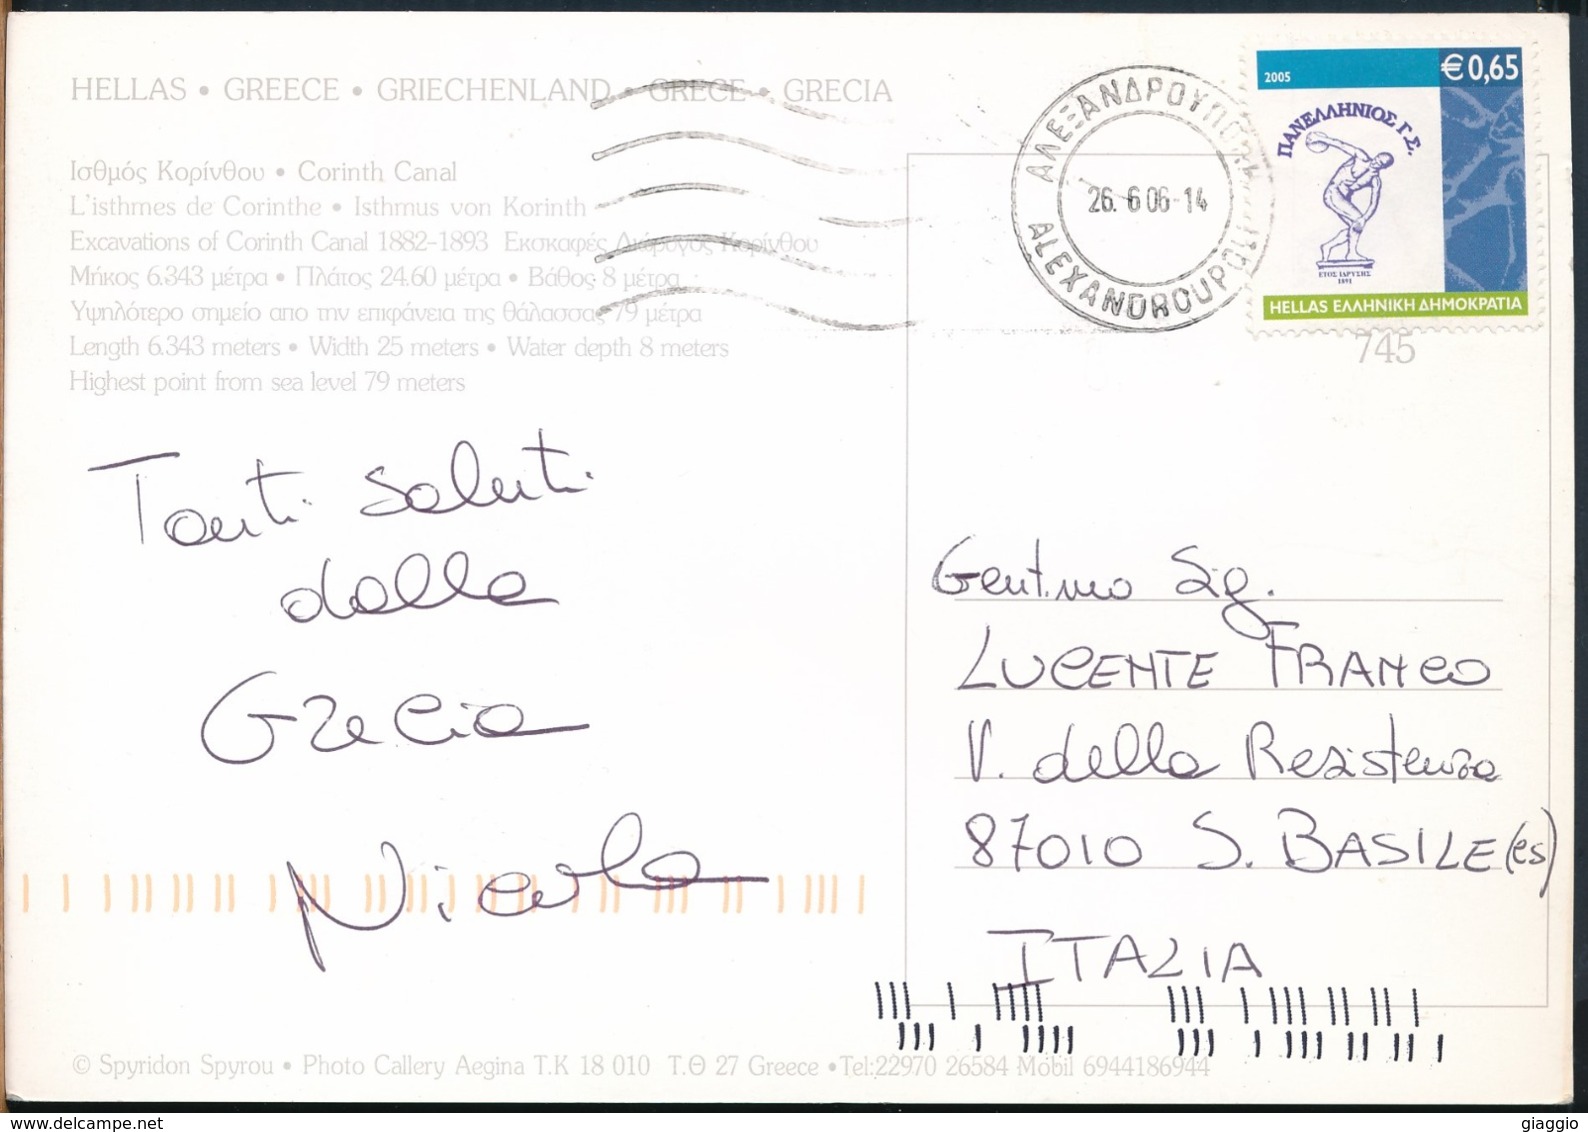 HELLAS • GREECE • GRIECHENLAND • GRECE • GRECIA
Ισθμός Κορίνθου • Corinth Canal
L'isthmes de Corinthe • Isthmus von Korinth
Excavations of Corinth Canal 1882-1893 Εκσκαφές Διώρυγος Κορίνθου
Μήκος 6.343 μέτρα • Πλάτος 24.60 μέτρα • Βάθος 8 μέτρα
Υψηλότερο σημείο απο την επιφάνεια της θάλασσας 79 μέτρα
Length 6.343 meters • Width 25 meters • Water depth 8 meters
Highest point from sea level 79 meters
ΑΛΕΞΑΝΔΡΟΥΠΟΛΗ
26. 6 06-14
ALEXANDROUPOLI
2005 €0,65
ΠΑΝΕΛΛΗΝΙΟΣ Γ.Σ.
ΕΤΟΣ ΙΔΡΥΣΗΣ
1891
HELLAS ΕΛΛΗΝΙΚΗ ΔΗΜΟΚΡΑΤΙΑ
745
Tanti saluti
dalla
Grecia
Nicola
Gent.mo Sig.
LUCENTE FRANCO
V. della Resistenza
87010 S. BASILE (cs)
ITALIA
© Spyridon Spyrou • Photo Callery Aegina T.K 18 010 T.Θ 27 Greece • Tel:22970 26584 Mobil 6944186944
www.delcampe.net
giaggio